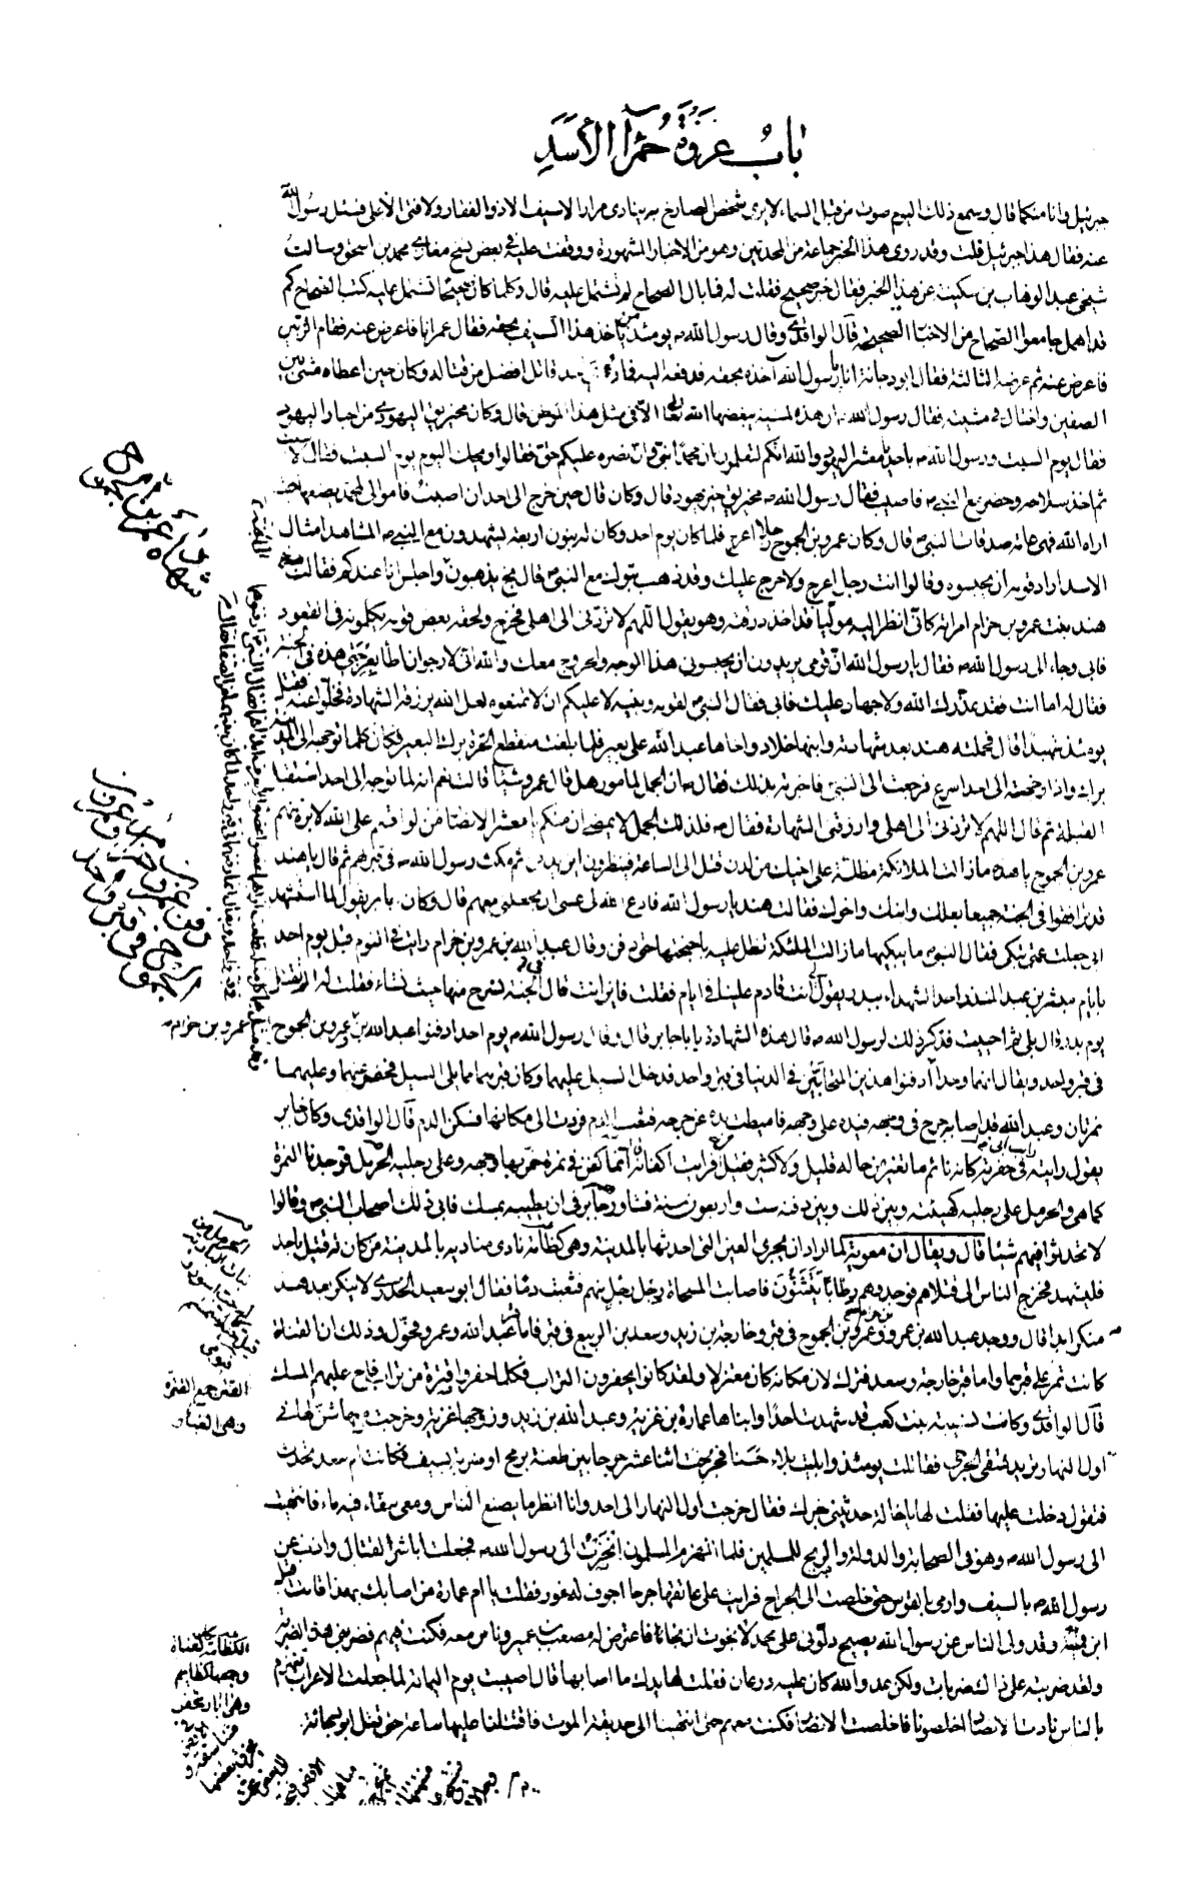 باب غزوة حمراء الأسد
جبرئيل وانا منكما قال وسمع ذلك اليوم صوت من قبل السماء لا يرى شخص الصارخ به ينادى مرارا لا سيف الا ذو الفقار ولا فتى الا على فسئل رسول الله
عنه فقال هذا جبرئيل قلت وقد روى هذا الخبر جماعة من المحدثين وهو من الاخبار المشهورة ووقفت عليه فى بعض نسخ مغازى محمد بن اسحق وسالت
شيخى عبد الوهاب بن سكينة عن هذا الخبر فقال خبر صحيح فقلت له فما بال الصحاح لم تشتمل عليه قال وكلما كان صحيحا تشتمل عليه كتب الصحاح كم
قد اهمل جامعوا الصحاح من الاخبار الصحيحة قال الواقدى وقال رسول الله ص يومئذ من ياخذ هذا السيف بحقه فقال عمر انا فاعرض عنه فقام الزبير
فاعرض عنه ثم عرضه الثالثة فقال ابو دجانة انا يا رسول الله آخذه بحقه فدفعه اليه قاتل افضل من قتاله وكان حين اعطاه مشى بين
الصفين واختال فى مشيته فقال رسول الله ص ان هذه لمشية يبغضها الله تعالى الا فى مثل هذا الموطن قال وكان مخيريق اليهودى من احبار اليهود
فقال يوم السبت ورسول الله ص باحد يا معشر اليهود والله انكم لتعلمون ان محمدا نبى وان نصره عليكم حق فقالوا ويحك اليوم يوم السبت فقال لا سبت
ثم اخذ سلاحه وحضر مع النبى ص فاصيب فقال رسول الله ص مخيريق خير يهود قال وكان قال حين خرج الى احد ان اصبت فاموالى لمحمد يضعها حيث
اراه الله فهى عامة صدقات النبى ص قال وكان عمرو بن الجموح رجلا اعرج فلما كان يوم احد وكان له بنون اربعة يشهدون مع النبى ص المشاهد امثال
الاسد اراد قومه ان يحبسوه وقالوا انت رجل اعرج ولا حرج عليك وقد ذهب بنوك مع النبى ص قال بخ يذهبون واجلس انا عندكم فقالت
هند بنت عمرو بن حزام امراته كانى انظر اليه موليا قد اخذ درقته وهو يقول اللهم لا تردنى الى اهلى فخرج ولحقه بعض قومه يكلمونه فى القعود
فابى وجاء الى رسول الله ص فقال يا رسول الله ان قومى يريدون ان يحبسونى هذا الوجه والخروج معك والله انى لارجو ان اطأ بعرجتى هذه فى الجنة
فقال له اما انت فقد عذرك الله ولا جهاد عليك فابى فقال النبى ص لقومه وبنيه لا عليكم ان لا تمنعوه لعل الله يرزقه الشهادة فخلوا عنه فقتل
يومئذ شهيدا قال فحملته هند بعد شهادته وابنها خلاد واخاها عبد الله على بعير فلما بلغت منقطع الحرة برك البعير فكان كلما توجهه الى المدينة
برك واذا وجهته الى احد اسرع فرجعت الى النبى ص فاخبرته بذلك فقال ص ان الجمل لمامور هل قال عمرو شيئا قالت نعم انه لما توجه الى احد استقبل
القبلة ثم قال اللهم لا تردنى الى اهلى وارزقنى الشهادة فقال ص فلذلك الجمل لا يمضى ان منكم يا معشر الانصار من لو اقسم على الله لابره منهم
عمرو بن الجموح يا هذه ما زالت الملائكة مظلة على اخيك من لدن قتل الى الساعة فينظرون اين يدفن ثم مكث رسول الله ص فى قبرهم ثم قال يا هند
قد ترافقوا فى الجنة جميعا بعلك وابنك واخوك فقالت هند يا رسول الله فادع الله لى عسى ان يجعلنى معهم قال وكان جابر يقول لما استشهد
ابى جعلت عمتى تبكى فقال النبى ص ما يبكيها ما زالت الملئكة تظل عليه باجنحتها حتى دفن وقال عبد الله بن عمرو بن حزام رايت فى النوم قبل يوم احد
بايام مبشر بن عبد المنذر احد الشهداء ببدر يقول لى انت قادم علينا فى ايام فقلت فاين انت قال فى الجنة نسرح منها حيث نشاء فقلت له الم تقتل
يوم بدر قال بلى ثم احييت فذكر ذلك لرسول الله ص قال هذه الشهادة يا ابا جابر قال وقال رسول الله ص يوم احد ادفنوا عبد الله بن عمرو بن الجموح
فى قبر واحد ويقال انهما وجدا ادفنوا هذين المتحابين فى الدنيا فى قبر واحد فدخل السيل عليهما وكان قبرهما مما يلى السيل فحفر عنهما وعليهما
نمرتان وعبد الله قد اصابه جرح فى وجهه فيده على وجهه فاميطت يده عن جرحه فثعب الدم فردت الى مكانها فسكن الدم قال الواقدى وكان جابر
يقول رايته فى حفرته كانه نائم ما تغير من حاله قليل ولا كثير فقيل افرايت اكفانه قال انما كفن فى نمرة خمر بها وجهه وعلى رجليه الحرمل فوجدنا النمرة
كما هى والحرمل على رجليه كهيئته وبين ذلك وبين دفنه ست واربعون سنة فشاورهم جابر فى ان يطيبه بمسك فابى ذلك اصحاب النبى ص وقالوا
لا تحدثوا فيهم شيئا قال ويقال ان معوية لما اراد ان يجرى العين التى احدثها بالمدينة وهى كظامة نادى مناديه بالمدينة من كان له قتيل باحد
فليشهد فخرج الناس الى قتلاهم فوجدوهم رطابا يتثنون فاصابت المسحاة رجل رجل منهم فثعبت دما فقال ابو سعيد الخدرى لا ينكر بعد هذا
منكر ابدا قال ووجد عبد الله بن عمرو وعمرو بن الجموح فى قبر وخارجة بن زيد وسعد بن الربيع فى قبر فاما قبر عبد الله وعمرو فحول وذلك ان القناة
كانت تمر على قبرهما واما قبر خارجة وسعد فترك لان مكانه كان معتزلا ولقد كانوا يحفرون التراب فكلما حفروا قترة من تراب فاح عليهم المسك
قال الواقدى وكانت نسيبة بنت كعب قد شهدت احدا وابناها عمارة بن غزية وعبد الله بن زيد وزوجها غزية وخرجت معها شن لها فى
اول النهار تريد تسقى الجرحى فقاتلت يومئذ وابليت بلاء حسنا فجرحت اثنا عشر جرحا بين طعنة برمح او ضربة بسيف فكانت ام سعد تحدث
فتقول دخلت عليها فقلت لها يا خالة حدثينى خبرك فقال خرجت اول النهار الى احد وانا انظر ما يصنع الناس ومعى سقاء فيه ماء فانتهيت
الى رسول الله ص وهو فى الصحابة والدولة والريح للمسلمين فلما انهزم المسلمون انحزت الى رسول الله ص فجعلت اباشر القتال واذب عن
رسول الله ص بالسيف وارمى بالقوس حتى خلصت الى الجراح فرايت على عاتقها جرحا اجوف له غور فقلت يا ام عمارة من اصابك بهذا قالت اقبل
ابن قميئة وقد ولى الناس عن رسول الله يصيح دلونى على محمد لا نجوت ان نجا فاعترض له مصعب بن عمير وناس معه فكنت فيهم فضربنى هذه الضربة
ولقد ضربته على ذلك ضربات ولكن عدو الله كان عليه درعان فقلت لها يدك ما اصابها قال اصيبت يوم اليمامة لما جعلت الاعراب تنهزم
بالناس نادت الانصار اخلصونا فاخلصت الانصار فكنت معهم حتى انتهينا الى حديقة الموت فاقتتلنا عليها ساعة حتى قتل ابو دجانة
شهادة عمرو بن الجموح
القتر جمع القترة
وهى الغبار
الكظامة كالقناة
وجمعها كظايم
وهى آبار تحفر